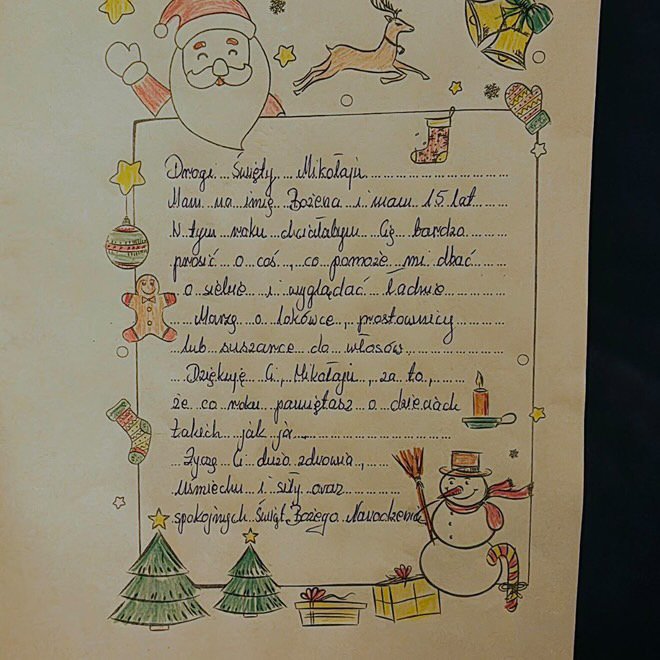 Drogi Święty Mikołaju
Mam na imię Bożena i mam 15 lat.
W tym roku chciałabym Cię bardzo
prosić o coś, co pomoże mi dbać
o siebie i wyglądać ładnie
Marzę o lokówce, prostownicy
lub suszarce do włosów
Dziękuję Ci, Mikołaju, za to,
że co roku pamiętasz o dzieciach
takich jak ja.
Życzę Ci dużo zdrowia,
uśmiechu i siły oraz
spokojnych Świąt Bożego Narodzenia